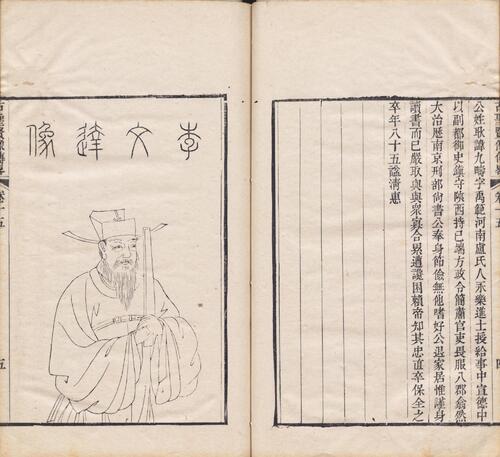 公姓耿諱九疇字禹範河南盧氏人永樂進士授給事中宣德中
以副都御史鎮守陝西持己端方政令簡肅官吏畏服八郡翕然
大治歷南京刑部尚書公奉身節儉無他嗜好公退家居惟謹身
讀書而已嚴取與與眾寡合累遭讒困賴帝知其忠直卒保全之
卒年八十五諡清惠
四
李文達像
古聖賢像傳畧
卷十五
五